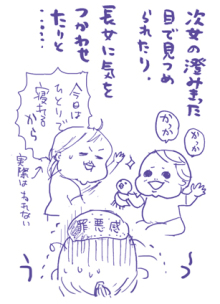 次女の澄みきった
目で見つめ
られたり、
長女に気を
つかわせ
たりと
……
かっか
かっか
今日は
ひとりで
寝れる
から
実際はねれない
罪悪感
う
う〜